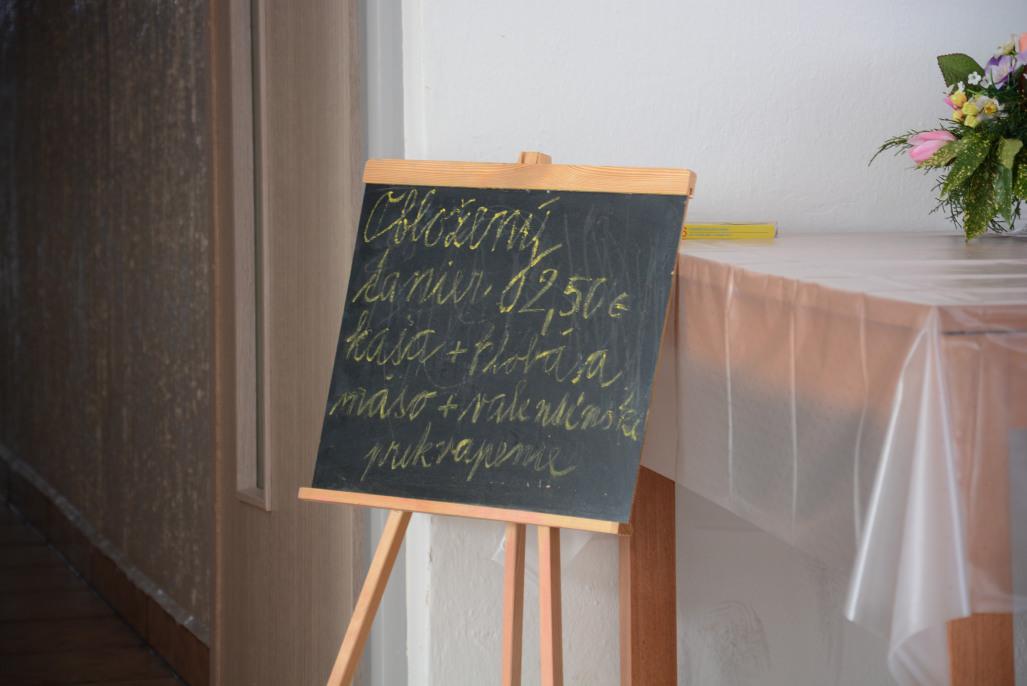 Obložený
tanier. 2,50€
kaša + klobása
mäso + valentínske
prekvapenie